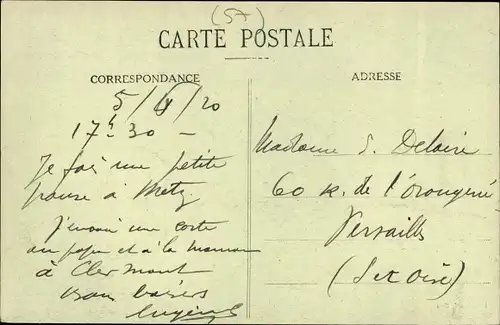 (57)
CARTE POSTALE
CORRESPONDANCE
5/ /20
17h30 —
Je fais une petite
pause à Metz
J'envoie une carte
au papa et à la maman
à Clermont
bons baisers
Eugène
ADRESSE
Madame S. Delaire
60 R. de l'Orangerie
Versailles
(S et Oise)